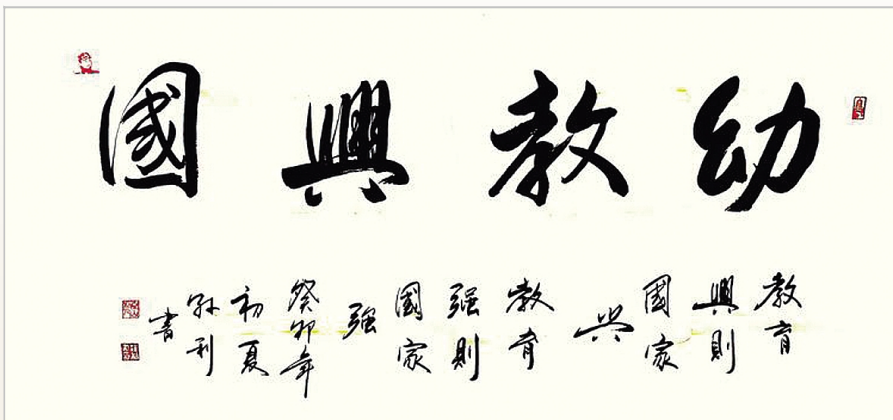 幼教興國
教育
興則
國家
興
教育
强則
國家
强
癸卯年
初夏
孙利
書